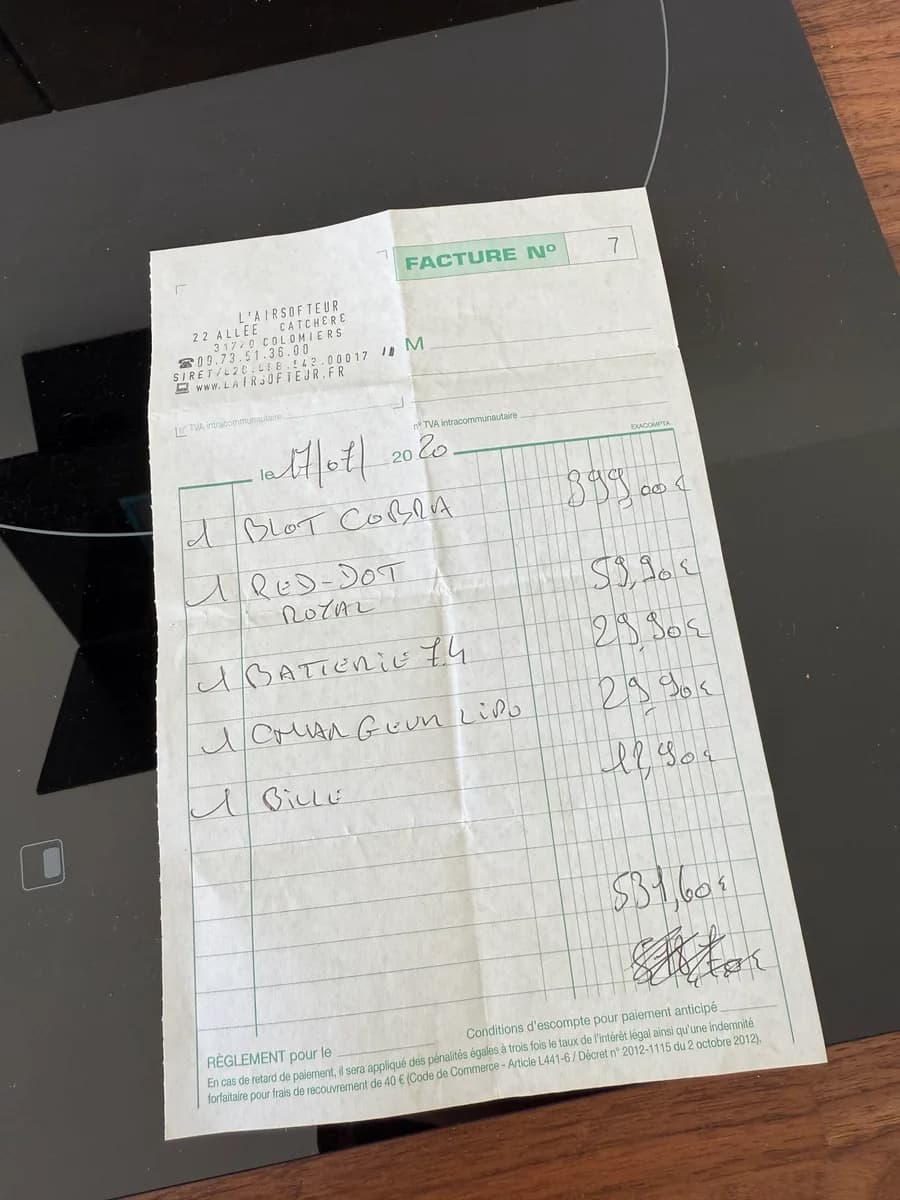 FACTURE Nº 7
L'AIRSOFTEUR
22 ALLEE CATCHERE
31770 COLOMIERS
☎09.73.51.36.00
SIRET/ .00017
www.LAIRSOFTEUR.FR
M
nº TVA intracommunautaire
nº TVA intracommunautaire
EXACOMPTA
le 17/07/ 2020
1 BLOT COBRA 399,00€
1 RED-DOT 59,90€
ROYAL
1 BATTERIE 7.4 29,90€
1 CHARGEUR LIPO 29,90€
1 BILLE 12,90€
531,60€
RÈGLEMENT pour le
Conditions d'escompte pour paiement anticipé
En cas de retard de paiement, il sera appliqué des pénalités égales à trois fois le taux de l'intérêt légal ainsi qu'une indemnité
forfaitaire pour frais de recouvrement de 40 € (Code de Commerce - Article L441-6 / Décret n° 2012-1115 du 2 octobre 2012).